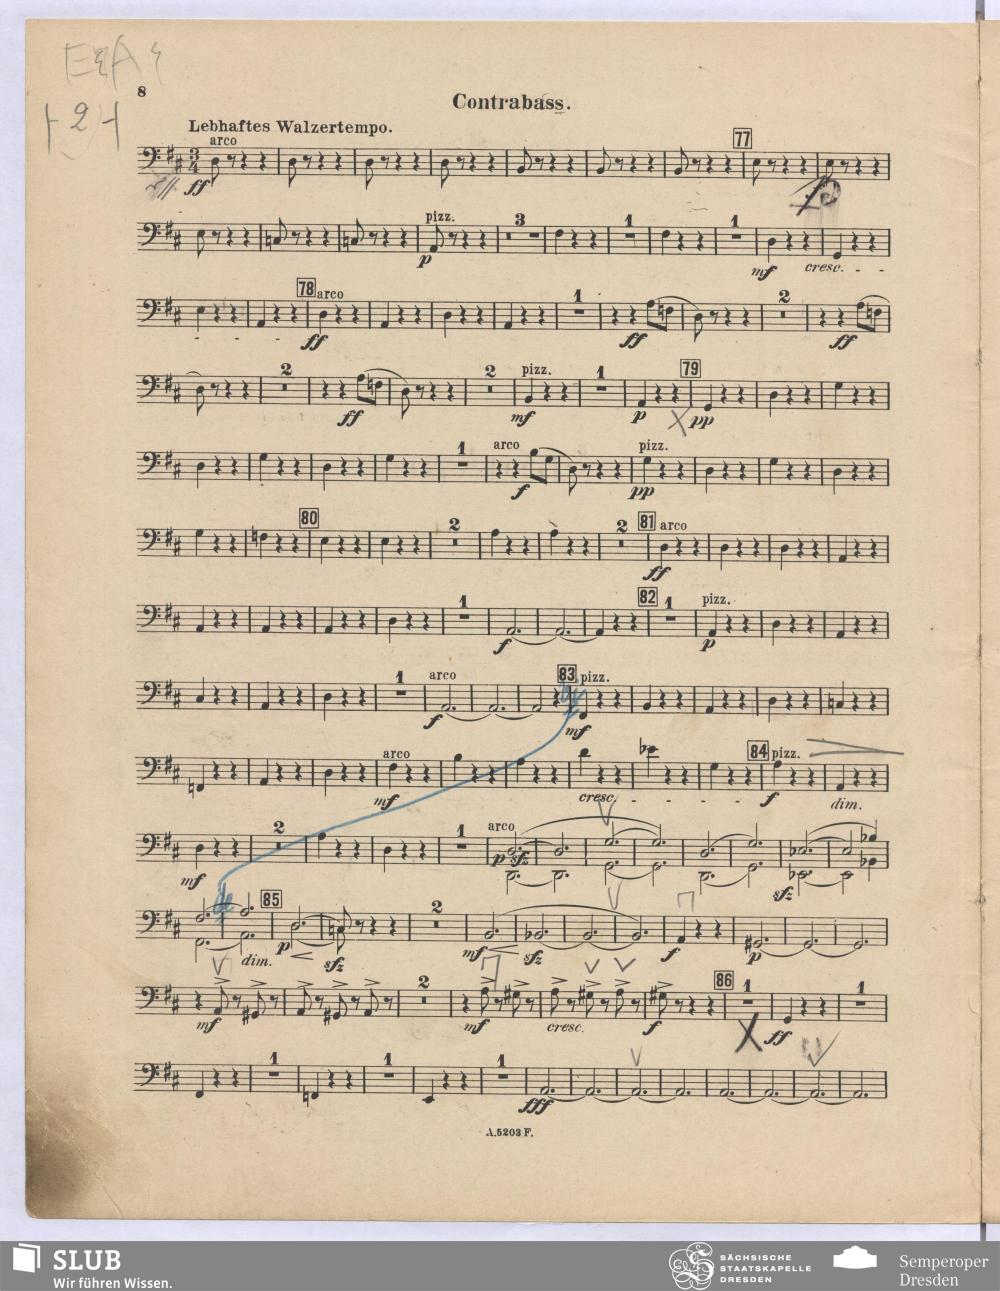 E&A
8
Contrabass.
+2+
Lebhaftes Walzertempo.
arco
77
ff
p
pizz.
3
1
1
p
mf
cresc.
78
arco
1
2
ff
ff
ff
2
2
pizz.
1
79
ff
mf
p
pp
1
arco
pizz.
f
pp
80
2
2
81
arco
ff
1
82
1
pizz.
f
p
1
arco
83
pizz.
f
mf
arco
84
pizz.
mf
cresc.
f
dim.
2
1
arco
mf
p sfz
sfz
de
85
2
dim.
p
sfz
mf
sfz
f
p
2
86
1
1
mf
mf
cresc.
f
ff
1
1
1
fff
A.5203 F.
SLUB
Wir führen Wissen.
SÄCHSISCHE
STAATSKAPELLE
DRESDEN
Semperoper
Dresden